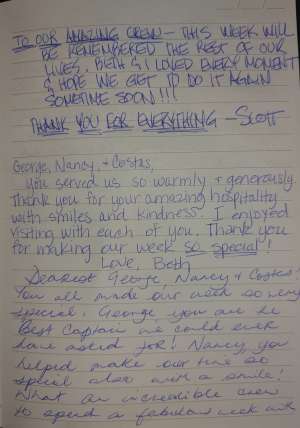 TO OUR AMAZING CREW - THIS WEEK WILL
BE REMEMBERED THE REST OF OUR
LIVES. BETH & I LOVED EVERY MOMENT
& HOPE WE GET TO DO IT AGAIN
SOMETIME SOON!!!
THANK YOU FOR EVERYTHING - SCOTT
George, Nancy, + Costas,
you served us so warmly + generously.
Thank you for your amazing hospitality
with smiles and kindness. I enjoyed
visiting with each of you. Thank you
for making our week so special!
Love, Beth
Dearest George, Nancy + Costas!
You all made our week so very
special. George you are the
Best Captain we could ever
have asked for! Nancy you
helped make our time so
special also with a smile!
What an incredible crew
to spend a fabulous week with